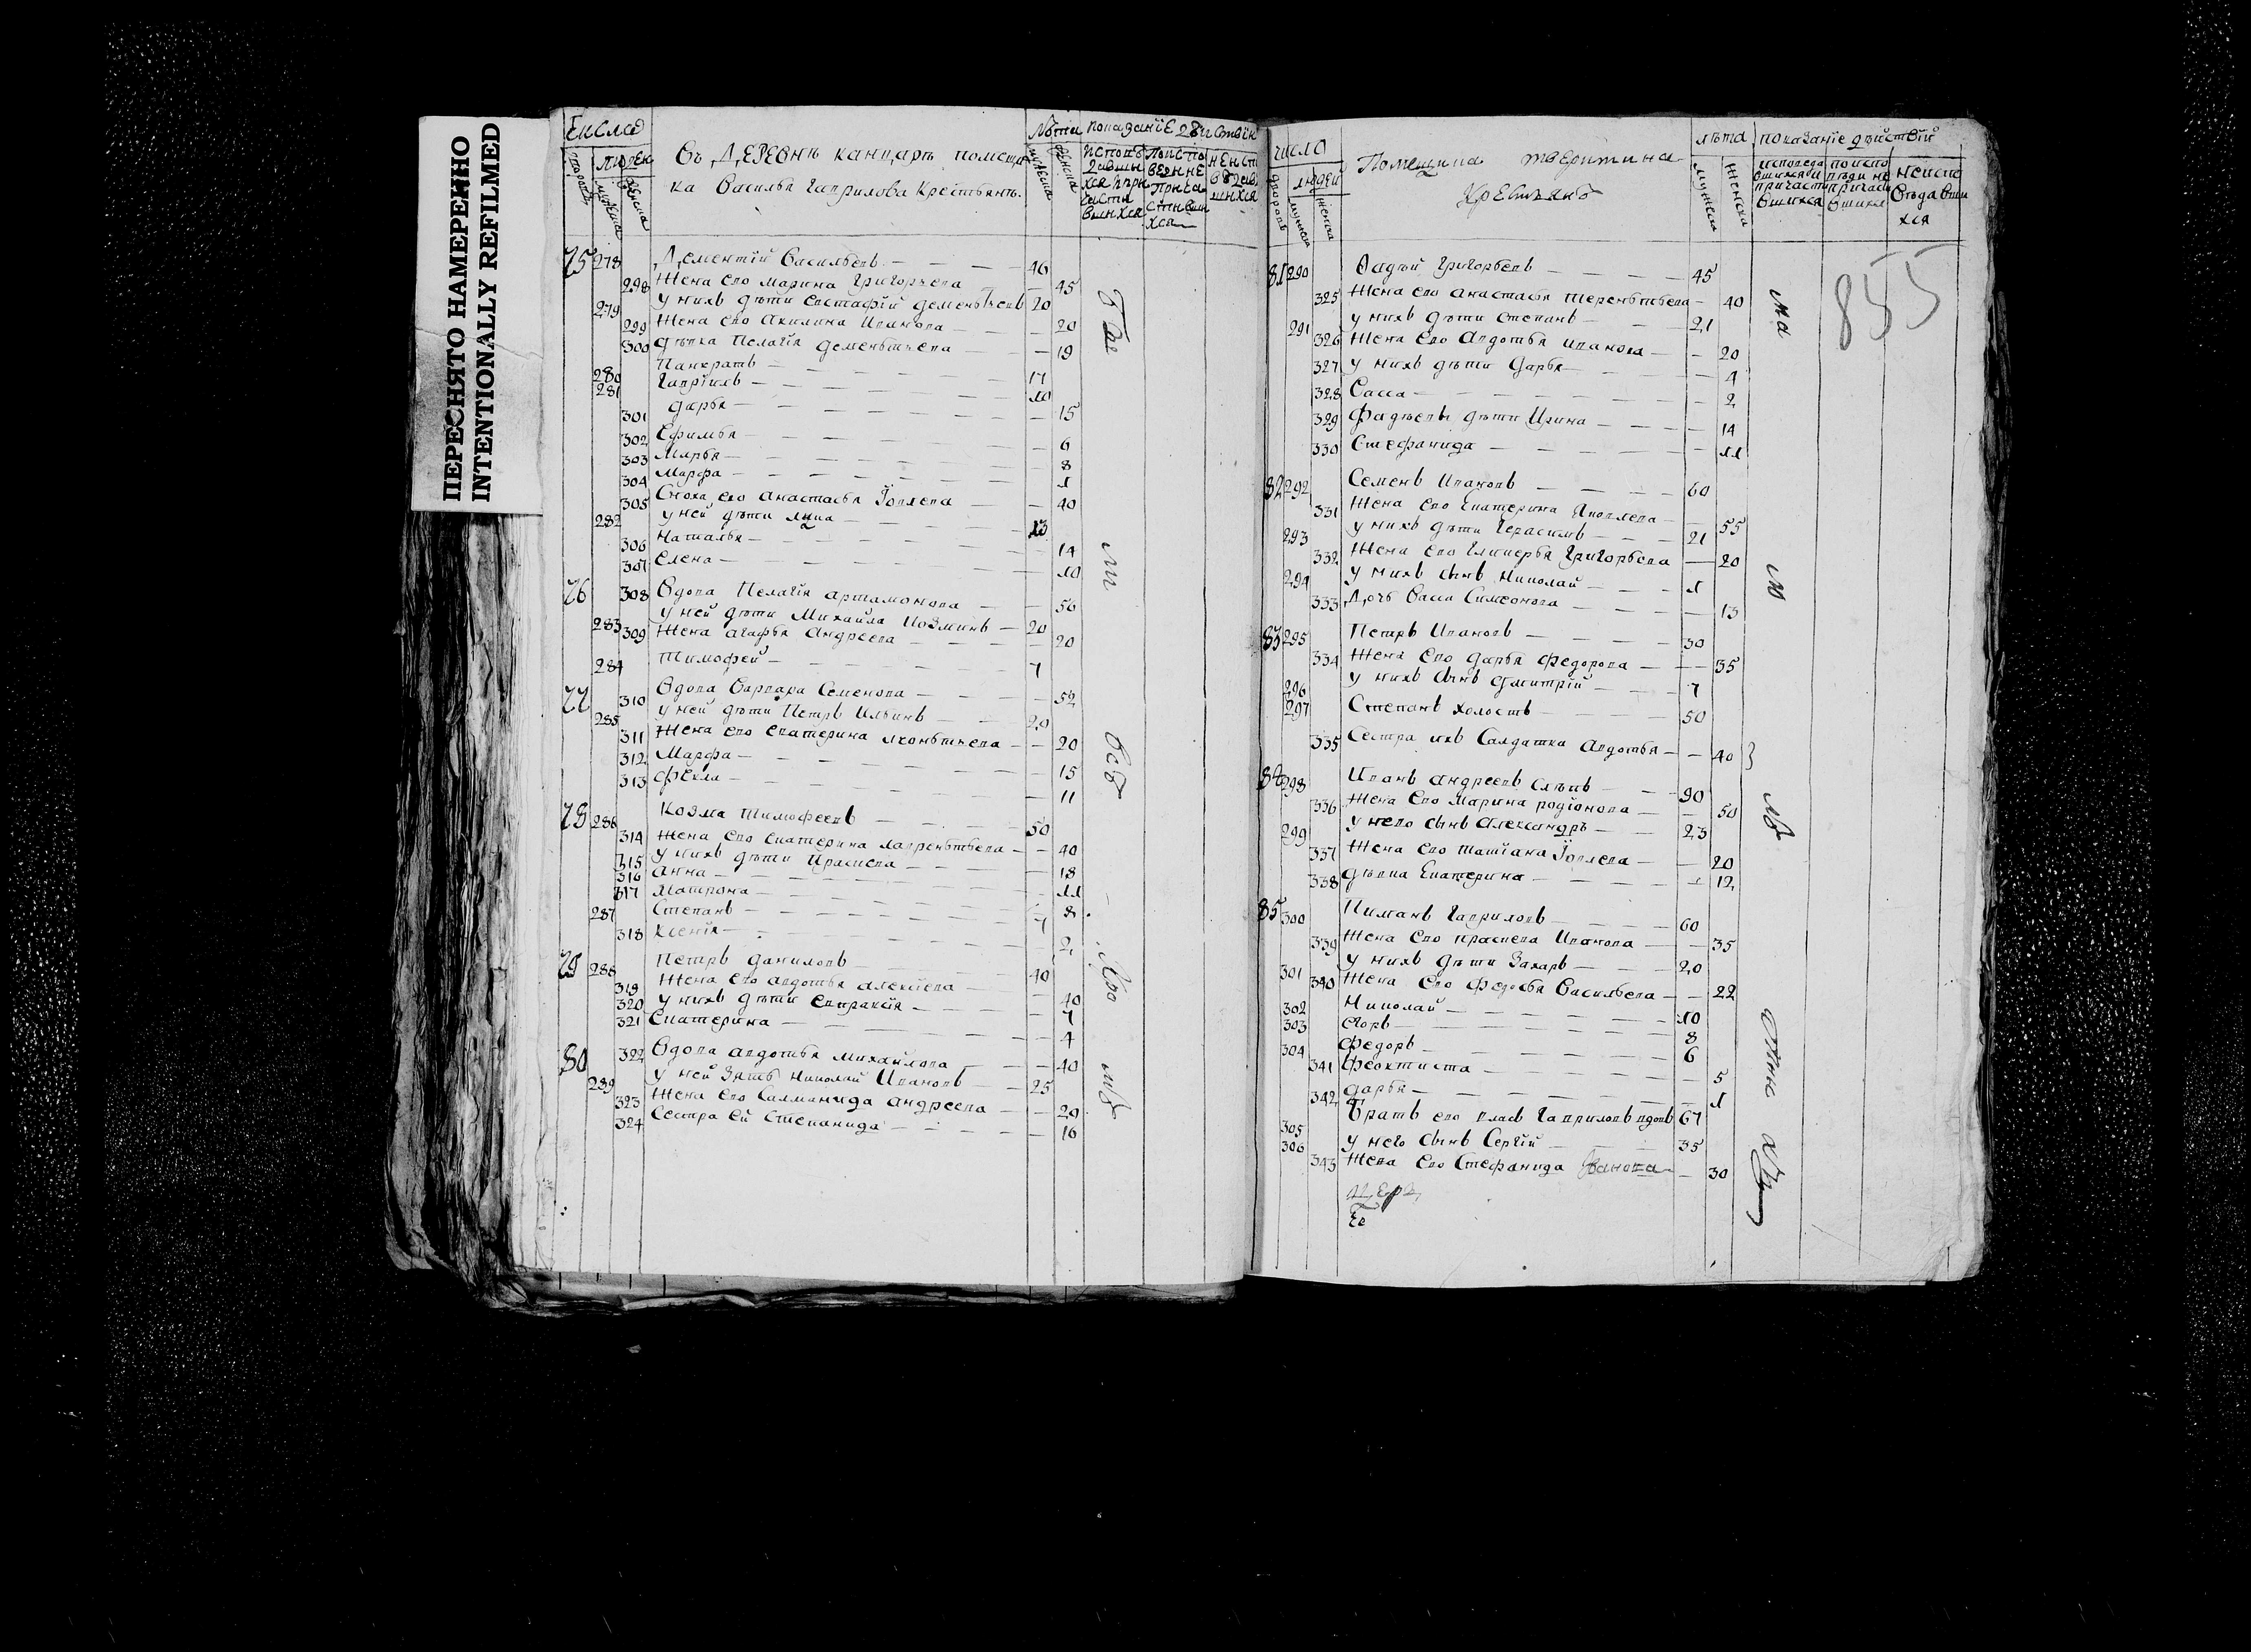 ПЕРЕСНЯТО НАМЕРЕННО
INTENTIONALLY REFILMED
Число
людей
Въ ДЕРЕВнѣ канцарѣ помѣщи
ка Василья Гаврилова Крестьянъ.
Лѣта показанїе
75 278 Дементїй Васильевъ 46
298 Жена его Марина Григорьева 45
279 У нихъ дѣти Евстафїй Дементьевъ 20
299 Жена его Акилина Иванова 20
300 дѣвка Пелагїя Дементьева 19
280 Панкратъ 17
281 Гаврїилъ 10
301 Дарья 15
302 Ефимья 6
303 Марья 8
304 Марфа 1
305 Сноха его Анастасья Їовлева 40
282 У ней дѣти 13
306 Наталья 14
307 Елена 10
76 308 Вдова Пелагїя Артамонова 56
283 У ней дѣти Михайла Козминъ 20
309 Жена Агафья Андреева 20
284 Тимофей 7
77 310 Вдова Варвара Семенова 52
285 У ней дѣти Петръ Ильинъ 20
311 Жена его Екатерина Леонтьева 20
312 Марфа 15
313 Фекла 11
78 286 Козма Тимофеевъ 50
314 Жена его Екатерина Лаврентьева 40
315 У нихъ дѣти Праскева 18
316 Анна 11
317 Матрона 8
287 Степанъ 7
318 Ксенїя 2
79 288 Петръ Даниловъ 40
319 Жена его Авдотья Алексїева 40
320 У нихъ дѣти Евпраксїя 7
321 Екатерина 4
80 322 Вдова Авдотья Михайлова 40
289 У ней Зять Николай Ивановъ 25
323 Жена его Салманида Андреева 20
324 Сестра ей Степанида 16
число
людей
Помещика тверитина
Крестьянъ
лѣта показанїе дѣйствїй
855
81 290 Фадѣй Григорьевъ 45
325 Жена его Анастасья Терентьева 40
291 У нихъ дѣти Степанъ 21
326 Жена его Авдотья Иванова 20
327 У нихъ дѣти Дарья 4
328 Васса 2
329 Фадѣевы дѣти Ирина 14
330 Стефанида 11
82 292 Семенъ Ивановъ 60
331 Жена его Екатерина Яковлева 55
293 У нихъ дѣти Герасимъ 21
332 Жена его Гликерья Григорьева 20
294 У нихъ сынъ Николай 1
333 Дочь Васса Симеонова 13
83 295 Петръ Ивановъ 30
334 Жена его Дарья Федорова 35
296 У нихъ сынъ Дмитрїй 7
297 Степанъ холостъ 50
335 Сестра ихъ Салдатка Авдотья 40
84 298 Иванъ Андреевъ слѣпъ 90
336 Жена его Марина Родїонова 50
299 У него сынъ Александръ 23
337 Жена его Татїана Їовлева 20
338 дѣвка Екатерина 12
85 300 Пиманъ Гавриловъ 60
339 Жена его Праскева Иванова 35
301 У нихъ дѣти Захаръ 20
340 Жена его Федосья Васильева 22
302 Николай 10
303 Егоръ 8
304 Федоръ 6
341 Феоктиста 5
342 Дарья 1
305 Братъ его Власъ Гавриловъ вдовъ 67
306 У него сынъ Сергїй 35
343 Жена его Стефанида Иванова 30